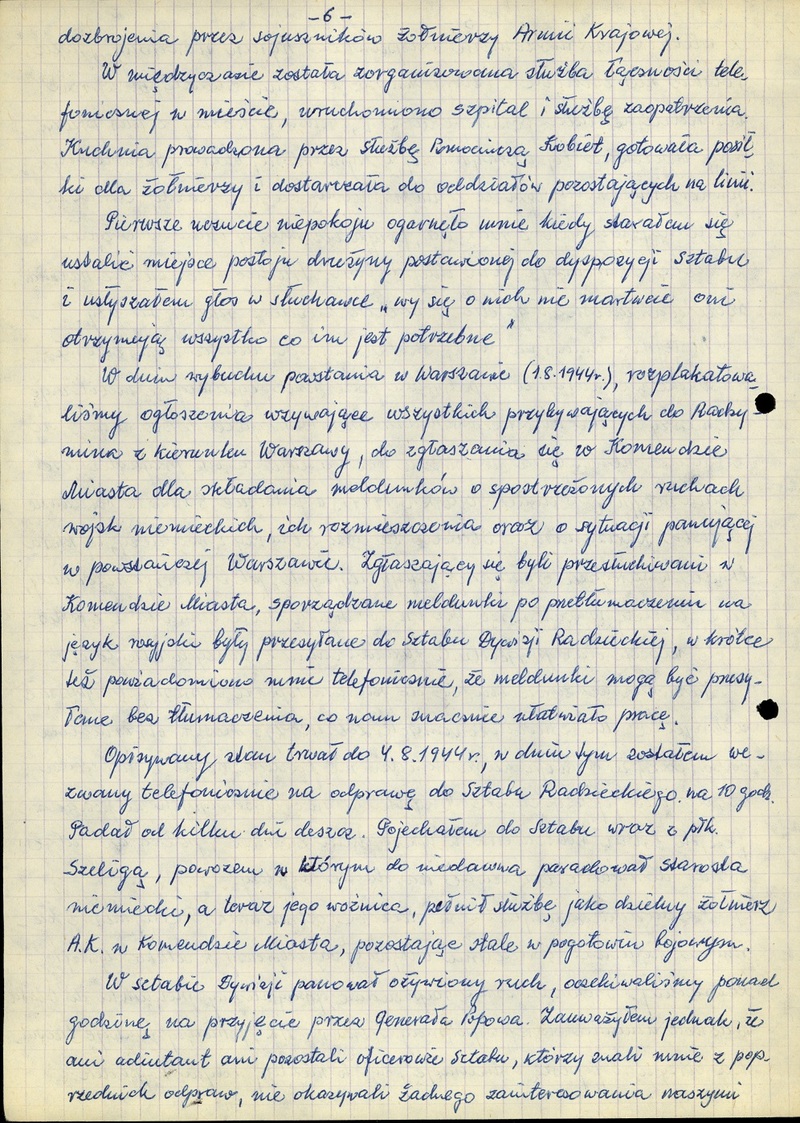 -6-
dozbrojenia przez sojuszników żołnierzy Armii Krajowej.
W międzyczasie została zorganizowana służba łączności tele-
fonicznej w mieście, uruchomiono szpital i służbę zaopatrzenia.
Kuchnia prowadzona przez Służbę Pomocniczą Kobiet, gotowała posił-
ki dla żołnierzy i dostarczała do oddziałów pozostających na linii.
Pierwsze uczucie niepokoju ogarnęło mnie kiedy starałem się
ustalić miejsce postoju drużyny postawionej do dyspozycji Sztabu
i usłyszałem głos w słuchawce „wy się o nich nie martwcie oni
otrzymują wszystko co im jest potrzebne"
W dniu wybuchu powstania w Warszawie (1.8.1944r.), rozplakatowa-
liśmy ogłoszenia wzywające wszystkich przybywających do Radzy-
mina z kierunku Warszawy, do zgłaszania się w Komendzie
Miasta dla składania meldunków o spostrzeżonych ruchach
wojsk niemieckich, ich rozmieszczenia oraz o sytuacji panującej
w powstańczej Warszawie. Zgłaszający się byli przesłuchiwani w
Komendzie Miasta, sporządzane meldunki po przetłumaczeniu na
język rosyjski były przesyłane do Sztabu Dywizji Radzieckiej, w krótce
też powiadomiono mnie telefonicznie, że meldunki mogą być przesy-
łane bez tłumaczenia, co nam znacznie ułatwiało pracę.
Opisywany stan trwał do 4.8.1944r., w dniu tym zostałem we-
zwany telefonicznie na odprawę do Sztabu Radzieckiego na 10 godz.
Padał od kilku dni deszcz. Pojechałem do Sztabu wraz z płk.
Szeligą, powozem w którym do niedawna paradował starosta
niemiecki, a teraz jego woźnica, pełnił służbę jako dzielny żołnierz
A.K. w Komendzie Miasta, pozostając stale w pogotowiu bojowym.
W sztabie Dywizji panował ożywiony ruch, oczekiwaliśmy ponad
godzinę na przyjęcie przez Generała Popowa. Zauważyłem jednak, że
ani adiutant ani pozostali oficerowie Sztabu, którzy znali mnie z pop-
rzednich odpraw, nie okazywali żadnego zainteresowania naszymi